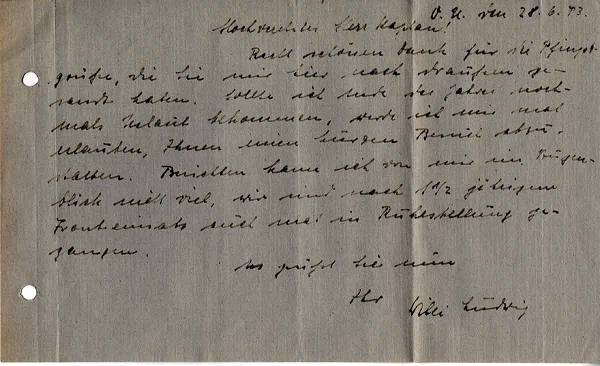 O. U. den 28.6.43.
Hochverehrter Herr Kaplan!
Recht schönen Dank für die Pfingst-
grüße, die Sie mir hier nach draußen ge-
sandt haben. Sollte ich Ende des Jahres noch-
mals Urlaub bekommen, werde ich mir mal
erlauben, Ihnen einen kurzen Besuch abzu-
statten. Berichten kann ich von mir im Augen-
blick nicht viel, wir sind nach 1 1/2 jährigem
Fronteinsatz auch mal in Ruhestellung ge-
gangen.
Es grüßt Sie nun
Ihr Willi Ludwig